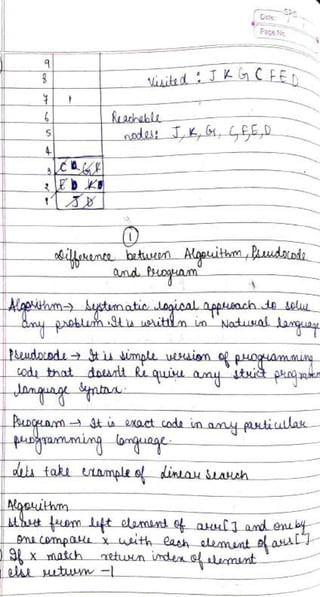 Date:
Page No.
9
8
Visited : J K G C F E D
7
6
Reachable
5
nodes: J, K, G, C, F, E, D
4
3
2
1 J D
1
Difference between Algorithm, Pseudocode
and Program
Algorithm → Systematic logical approach to solve
any problem. It is written in Natural language
Pseudocode → It is simple version of programming
code that doesn't Require any strict program
language syntax.
Program → It is exact code in any particular
programming language.
Lets take example of Linear search
Algorithm
start from left element of arr[] and one by
one compare x with each element of arr[]
If x match return index of element
else return -1